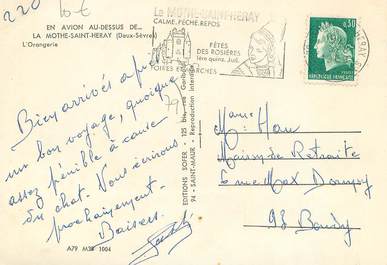 220
10€
EN AVION AU-DESSUS DE...
LA MOTHE-SAINT-HERAY (Deux-Sèvres)
L'Orangerie
La MOTHE-SAINT-HERAY
CALME, PÊCHE, REPOS
FÊTES
DES ROSIÈRES
1ère quinz. Juil.
FOIRES MARCHES
0,30
REPUBLIQUE FRANÇAISE
Bien arrivés après
un bon voyage, quoique
assez pénible à cause
du chat. Vous écrirons
prochainement.
Baisers
A79 M38 1004
EDITIONS SOFER - 125 bis,
94 - SAINT-MAUR - Reproduction interdite
Maison de Retraite
6 rue Max Dormoy
93 Bondy